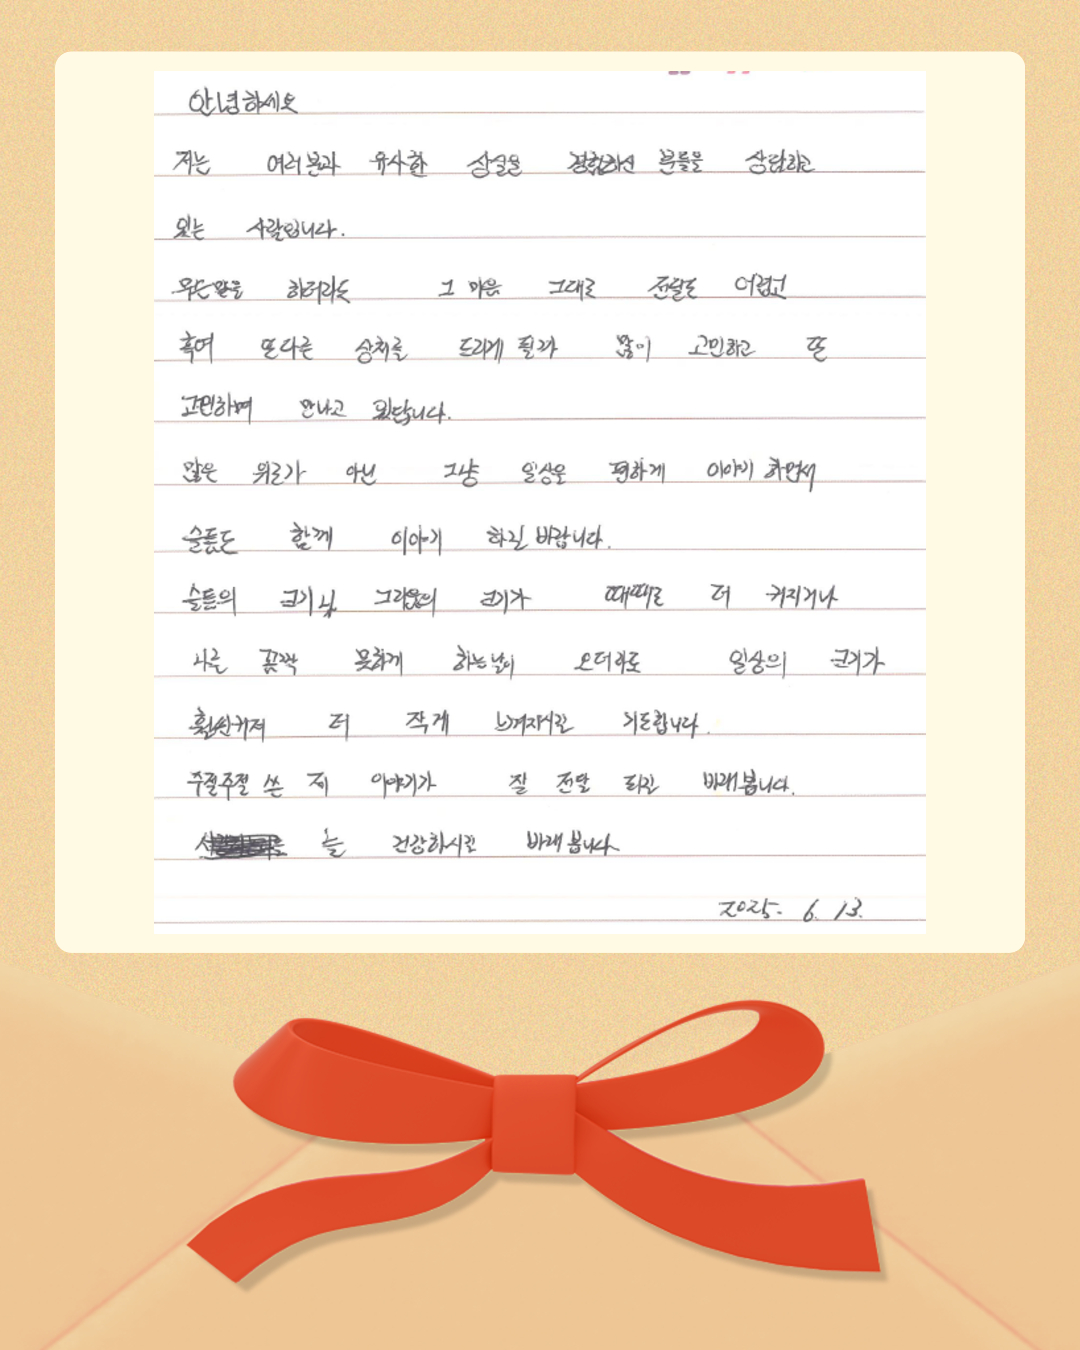 안녕하세요
저는 여러분과 유사한 상실을 경험하신 분들을 상담하고
있는 사람입니다.
무슨말을 하더라도 그 마음 그대로 전달도 어렵고
혹여 또다른 상처를 드리게 될까 많이 고민하고 또
고민하며 만나고 있답니다.
많은 위로가 아닌 그냥 일상을 편하게 이야기 하면서
슬픔도 함께 이야기 하길 바랍니다.
슬픔의 크기 및 그리움의 크기가 때때로 더 커지거나
나를 꼼짝 못하게 하는날이 오더라도 일상의 크기가
훨씬커져 더 작게 느껴지시길 기도합니다.
주절주절 쓴 제 이야기가 잘 전달 되길 바래봅니다.
늘 건강하시길 바래봅니다
2025. 6. 13.